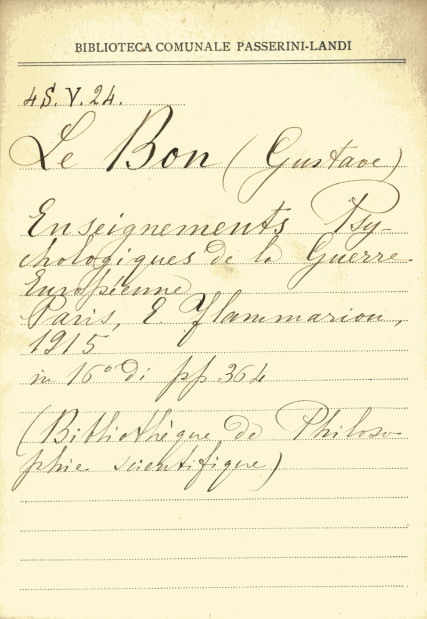 BIBLIOTECA COMUNALE PASSERINI-LANDI
4S.V.24.
Le Bon (Gustave)
Enseignements Psy-
chologiques de la Guerre
Européenne
Paris, E. Flammarion,
1915
in 16° di pp 364
(Bibliothèque de Philoso-
phie scientifique)